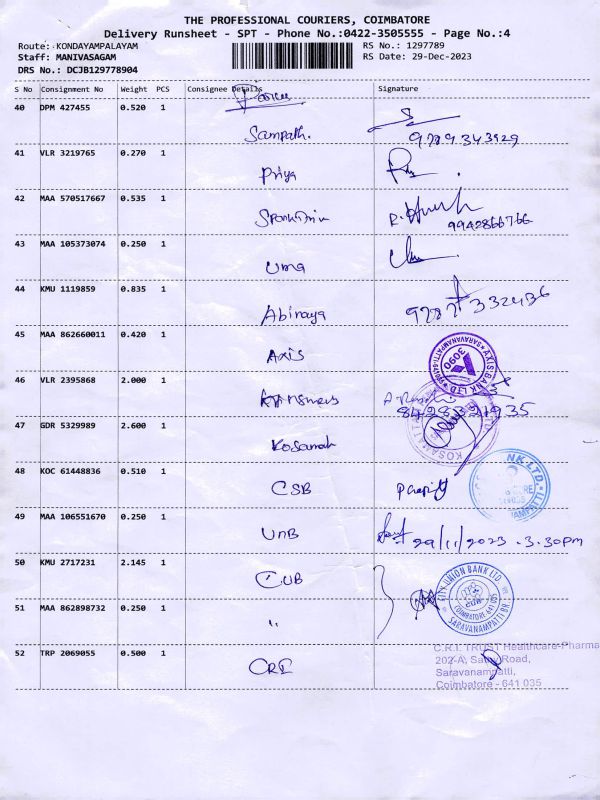 THE PROFESSIONAL COURIERS, COIMBATORE
Delivery Runsheet - SPT - Phone No.:0422-3505555 - Page No.:4
Route: KONDAYAMPALAYAM RS No.: 1297789
Staff: MANIVASAGAM RS Date: 29-Dec-2023
DRS No.: DCJB129778904
S No Consignment No Weight PCS Consignee Details Signature
40 DPM 427455 0.520 1
Sampath. 9789343929
41 VLR 3219765 0.270 1
Priya
42 MAA 570517667 0.535 1
9942866766
43 MAA 105373074 0.250 1
Uma
44 KMU 1119859 0.835 1
Abinaya 332436
45 MAA 862660011 0.420 1
Axis
AXIS BANK LTD SARAVANAMPATTI 3090
46 VLR 2395868 2.000 1
8428321935
47 GDR 5329989 2.600 1
Kosamah
48 KOC 61448836 0.510 1
CSB
NK LTD.
49 MAA 106551670 0.250 1
UnB 29/11/2023 .3.30pm
50 KMU 2717231 2.145 1
CUB
CITY UNION BANK LTD CUB COIMBATORE 641 035 SARAVANAMPATTI BR.
51 MAA 862898732 0.250 1
"
52 TRP 2069055 0.500 1
CRI
C.R.I. TRUST Healthcare-Pharma
202-A, Road,
Saravanampatti,
Coimbatore - 641 035